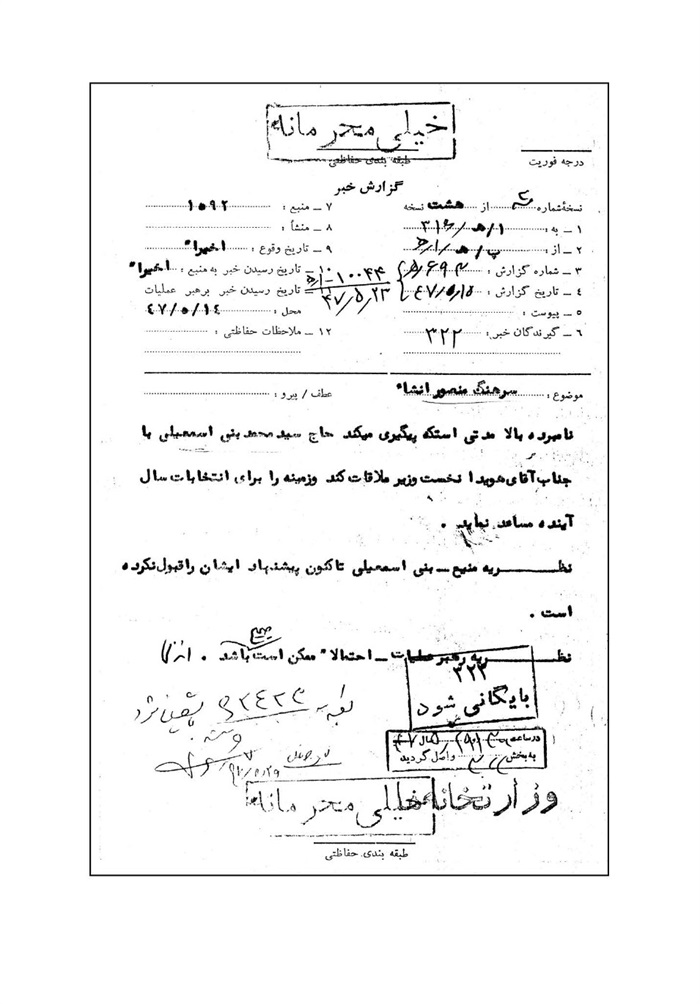 خیلی محرمانه
طبقه بندی حفاظتی
درجه فوریت
گزارش خبر
نسخهٔ شماره ۳ از هشت نسخه
۱ ـ به : ۳۱۶/ هـ / ۱
۲ ـ از :
۳ ـ شماره گزارش :
۴ ـ تاریخ گزارش : ۴۷/۵/۱۵
۵ ـ پیوست :
۶ ـ گیرندگان خبر : ۳۲۲
۷ ـ منبع : ۱۵۹۲
۸ ـ منشأ :
۹ ـ تاریخ وقوع : اخیرا"
۱۰ ـ تاریخ رسیدن خبر به منبع : اخیرا"
۱۱ ـ تاریخ رسیدن خبر برهبر عملیات
محل : ۴۷/۵/۱۴
۱۲ ـ ملاحظات حفاظتی :
۱۰۰۴۴
۴۷/۵/۲۳
موضوع : سرهنگ منصور انشاء
عطف / پیرو :
نامبرده بالا مدتی استکه پیگیری میکند حاج سید محمد بنی اسمعیلی با
جناب آقای هویدا نخست وزیر ملاقات کند وزمینه را برای انتخابات سال
آینده مساعد نماید .
نظـــــریه منبع ـ بنی اسمعیلی تاکنون پیشنهاد ایشان را قبول نکرده
است .
نظـــــریه رهبر عملیات ـ احتمالا" ممکن است باشد .
صحیح
۳۲۲
بایگانی شود
در ساعت سال ۴۷
به بخش واصل گردید
وزارتخانه
خیلی محرمانه
طبقه بندی حفاظتی